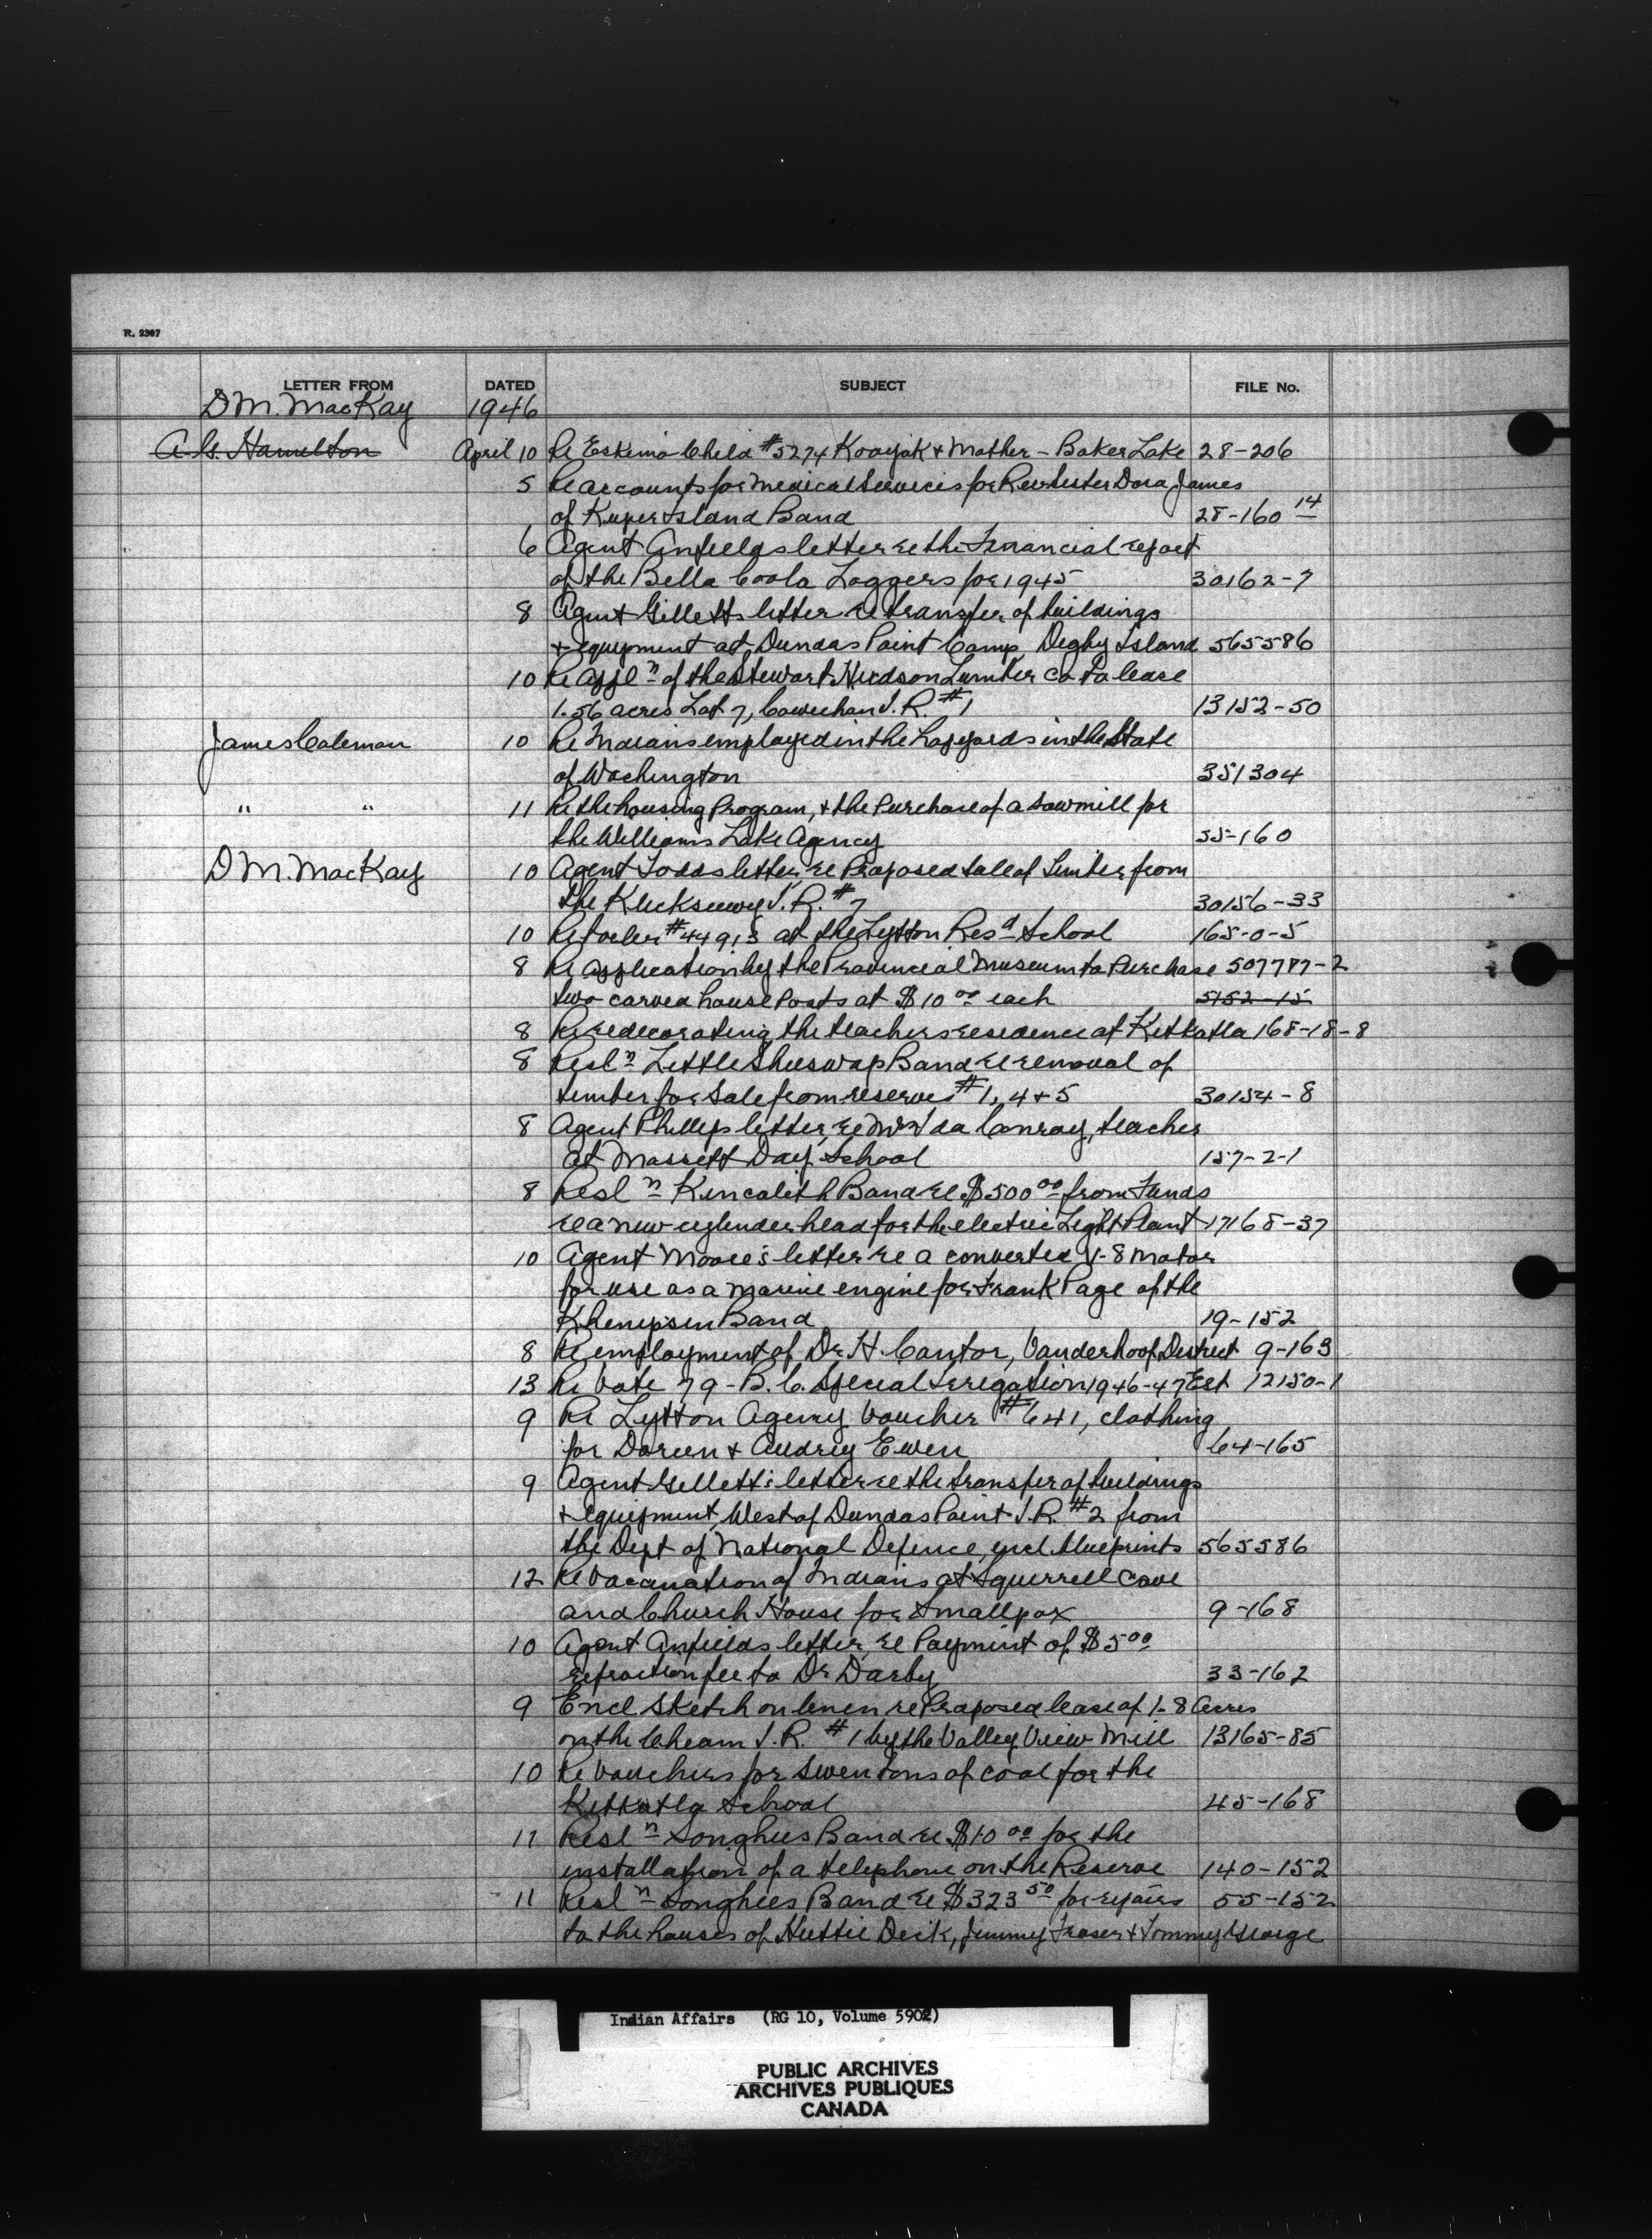 R. 2307
LETTER FROM DATED SUBJECT FILE No.
D M. MacKay 1946
A. G. Hamelton April 10 Re Eskimo Child #5274 Kooyak + Mother - Baker Lake 28-206
5 Re accounts for medical services for Rev Sister Dora James
of Kuper Island Band 28-160 14
6 Agent Anfields letter re the Financial report
of the Bella Coola Loggers for 1945 30162-7
8 Agent Gilletts letter re transfer of buildings
+ equipment at Dundas Point Camp, Digby Island 565586
10 Re Appl n of the Stewart Hudson Lumber Co to lease
1.56 acres Lot 7, Cowichan I. R. #1 13152-50
James Coleman 10 Re Indians employed in the Hopyards in the State
of Washington 351304
" " 11 Re the housing Program, + the Purchase of a sawmill for
the Williams Lake Agency 55-160
D M. MacKay 10 Agent Todds letter, re Proposed sale of timber from
the I. R. #7 30156-33
10 Re #44913 at the Lytton Res d School 165-0-5
8 Re application by the Provincial Museum to Purchase 507787-2
two carved house Posts at $10 00 each 5152-15
8 Re redecorating the teachers residence at Kitkatla 168-18-8
8 Resl n Little Shuswap Band re removal of
timber for Sale from reserves #1, 4 + 5 30154-8
8 Agent Phillips letter, re Mrs Ida Conray, teacher
at Massett Day School 157-2-1
8 Resl n Kincolith Band re $500 00 from Funds
re a new cylinder head for the electric Light Plant 17168-37
10 Agent Moore's letter re a converted V-8 motor
for use as a marine engine for Frank Page of the
Khenipsin Band 19-152
8 Re employment of Dr H. Cantor, Vanderhoof District 9-163
13 Re Vote 79 - B. C. Special Irrigation 1946-47 Est 12150-1
9 Re Lytton Agency Voucher #641, clothing
for Doreen + Audrey Ewen 64-165
9 Agent Gilletts letter re the transfer of buildings
+ equipment, West of Dundas Point I. R. #2 from
the Dept of National Defence, encl. blueprints 565586
12 Re Vacanation of Indians at Squerrell Cove
and Church House for Smallpox 9-168
10 Agent Anfields letter, re Payment of $5 00
refraction fee to Dr Darby 33-162
9 Encl Sketch on linen re Proposed lease of 1.8 Acres
on the Cheam I. R. #1 by the Valley View Mill 13165-85
10 Re Vouchers for seven tons of coal for the
Kitkatla School 45-168
11 Resl n Songhees Band re $10 00 for the
installation of a telephone on the Reserve 140-152
11 Resl n Songhees Band re $323 50 for repairs 55-152
to the houses of Hettie Deik, Jimmy Fraser + Tommy George
Indian Affairs (RG 10, Volume 5902)
PUBLIC ARCHIVES
ARCHIVES PUBLIQUES
CANADA